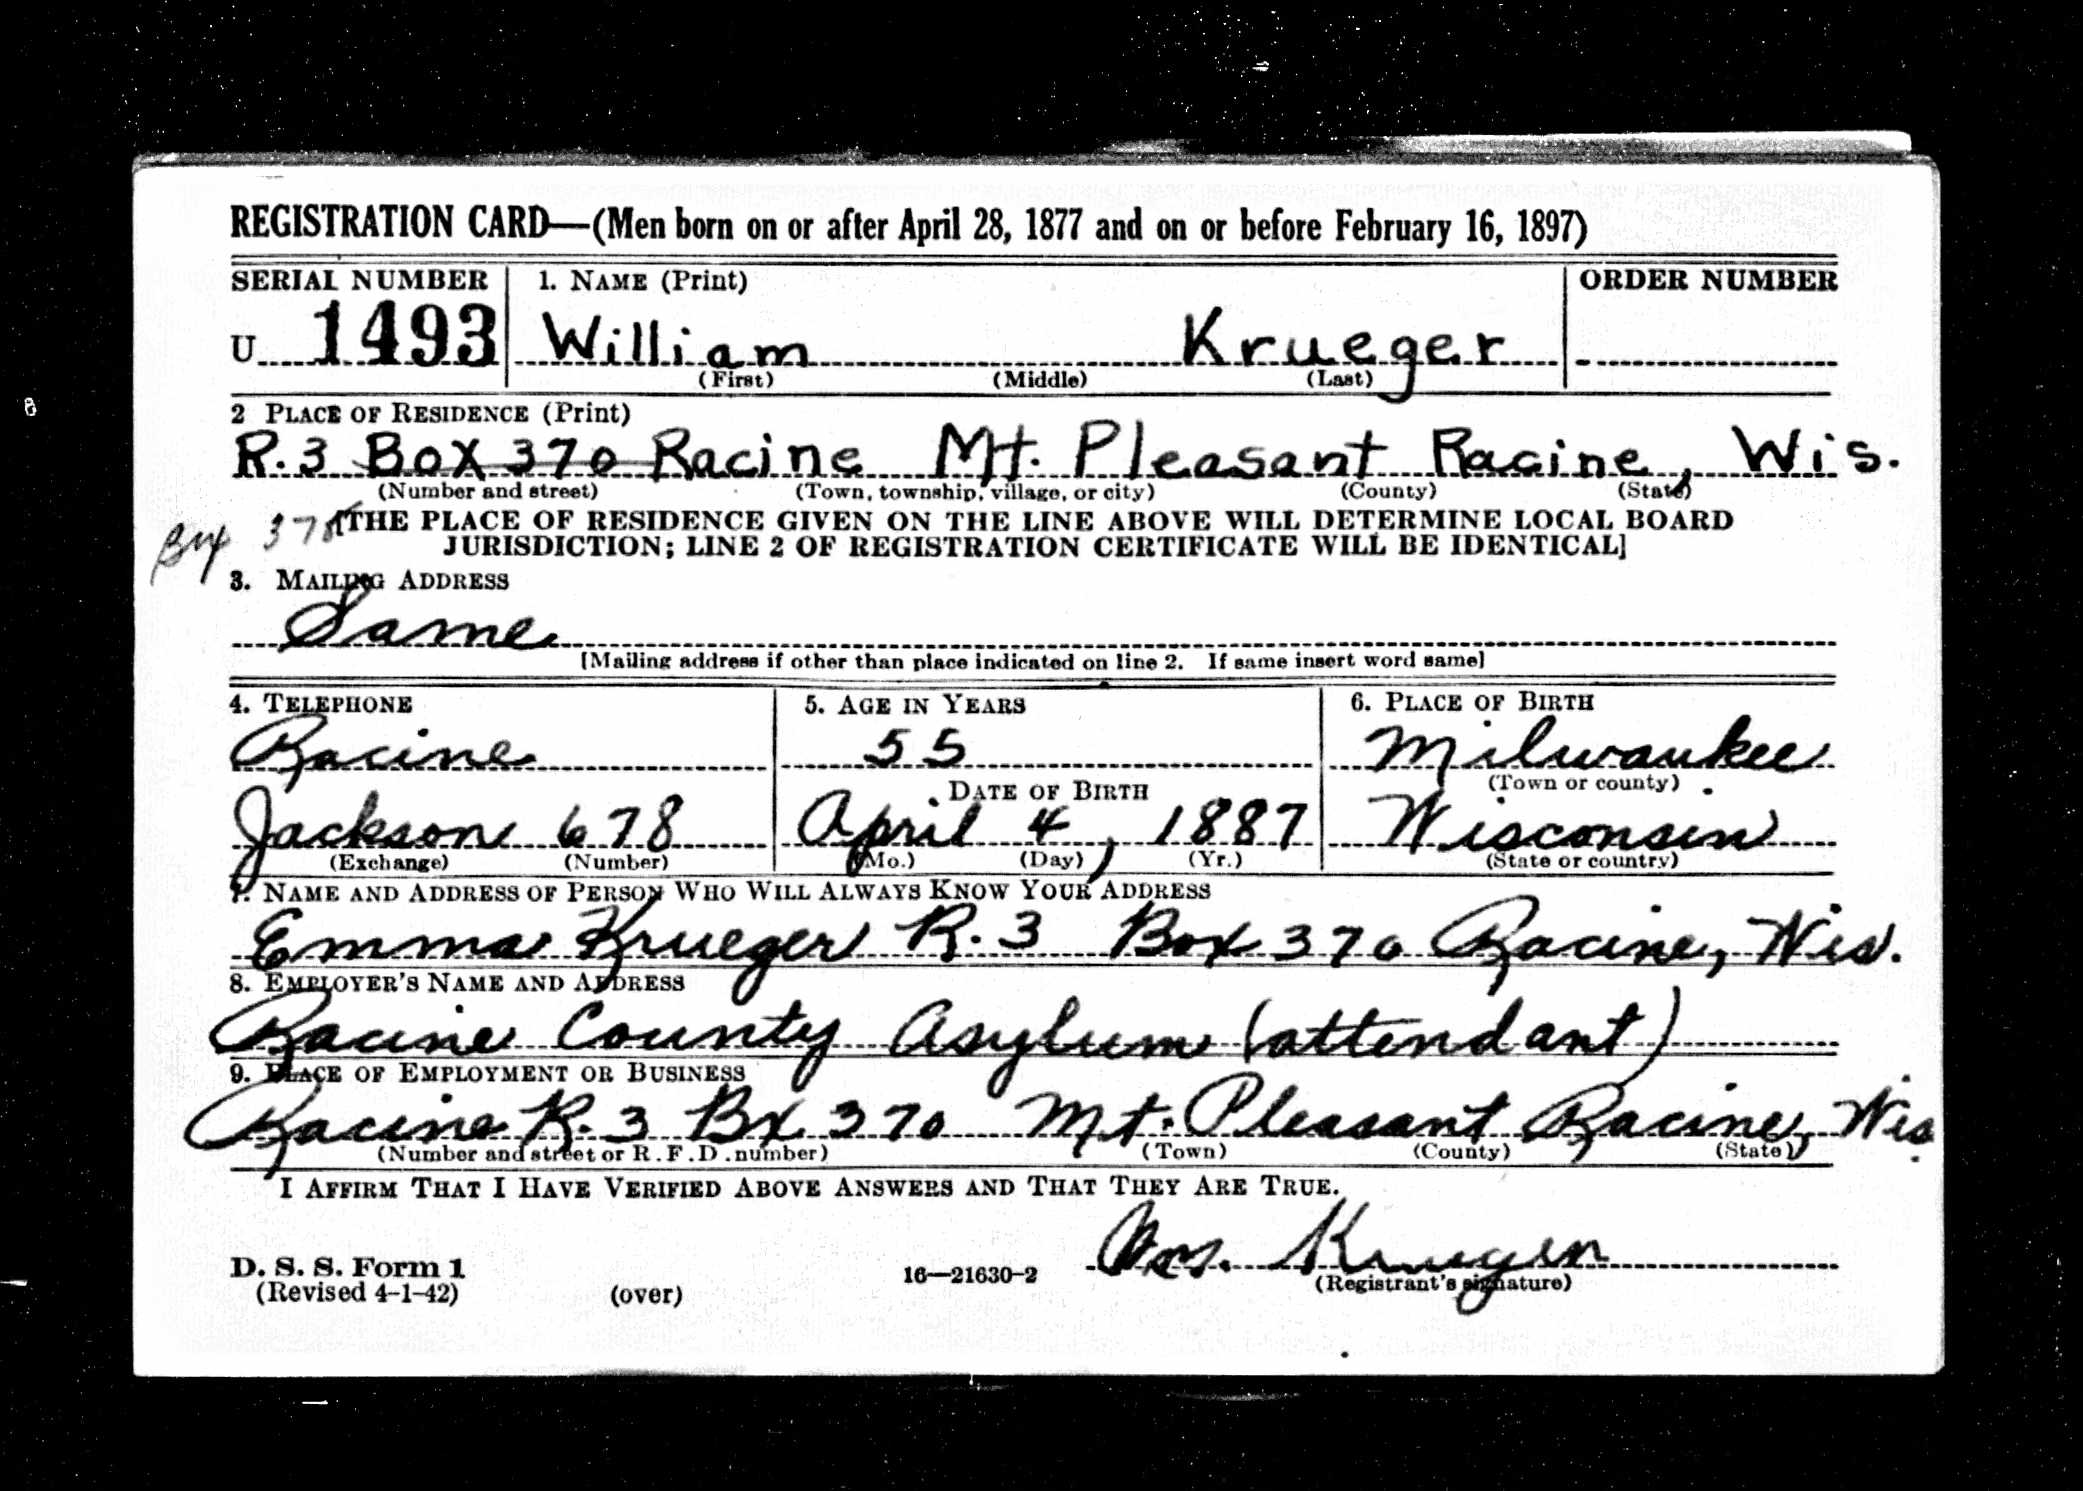 REGISTRATION CARD—(Men born on or after April 28, 1877 and on or before February 16, 1897)
SERIAL NUMBER 1. NAME (Print) ORDER NUMBER
U 1493 William Krueger
(First) (Middle) (Last)
2 PLACE OF RESIDENCE (Print)
R.3 Box 370 Racine Mt. Pleasant Racine, Wis.
(Number and street) (Town, township, village, or city) (County) (State)
Box 378
[THE PLACE OF RESIDENCE GIVEN ON THE LINE ABOVE WILL DETERMINE LOCAL BOARD
JURISDICTION; LINE 2 OF REGISTRATION CERTIFICATE WILL BE IDENTICAL]
3. MAILING ADDRESS
Same
[Mailing address if other than place indicated on line 2. If same insert word same]
4. TELEPHONE 5. AGE IN YEARS 6. PLACE OF BIRTH
Racine 55 Milwaukee
DATE OF BIRTH (Town or county)
Jackson 678 April 4, 1887 Wisconsin
(Exchange) (Number) (Mo.) (Day) (Yr.) (State or country)
7. NAME AND ADDRESS OF PERSON WHO WILL ALWAYS KNOW YOUR ADDRESS
Emma Krueger R.3 Box 370 Racine, Wis.
8. EMPLOYER'S NAME AND ADDRESS
Racine County Asylum (attendant)
9. PLACE OF EMPLOYMENT OR BUSINESS
Racine R.3 Bx 370 Mt. Pleasant Racine, Wis.
(Number and street or R.F.D. number) (Town) (County) (State)
I AFFIRM THAT I HAVE VERIFIED ABOVE ANSWERS AND THAT THEY ARE TRUE.
Wm. Krueger
D. S. S. Form 1 16—21630-2 (Registrant's signature)
(Revised 4-1-42) (over)